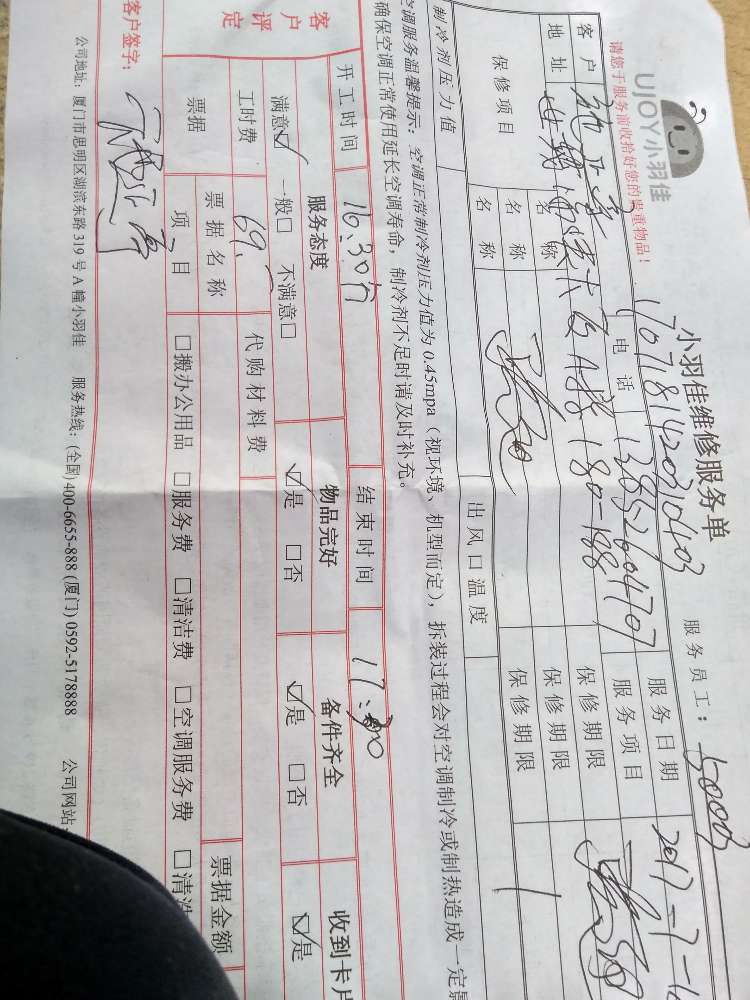 UJOY小羽佳
请您于服务前收拾好您的贵重物品！
小羽佳维修服务单
服务员工： 5003
客户 电话 服务日期 2017-7-1
地址 A栋 180-188 服务项目
保修项目 名称 保修期限
名称 保修期限
名称 保修期限
制冷剂压力值 出风口温度
空调服务温馨提示：空调正常制冷剂压力值为 0.45mpa（视环境、机型而定），拆装过程会对空调制冷或制热造成一定
确保空调正常使用延长空调寿命，制冷剂不足时请及时补充。
开工时间 16:30分 结束时间
客户评定 服务态度 物品完好 备件齐全 收到卡片
满意☑ 一般□ 不满意□ ☑是 □否 ☑是 □否 ☑是
工时费 69. 代购材料费
票据 票据名称 票据金额
项目 □搬办公用品 □服务费 □清洁费 □空调服务费 □清洗
客户签字：
公司地址：厦门市思明区湖滨东路 319 号 A 幢小羽佳 服务热线：(全国)400-6655-888 (厦门) 0592-5178888 公司网站：